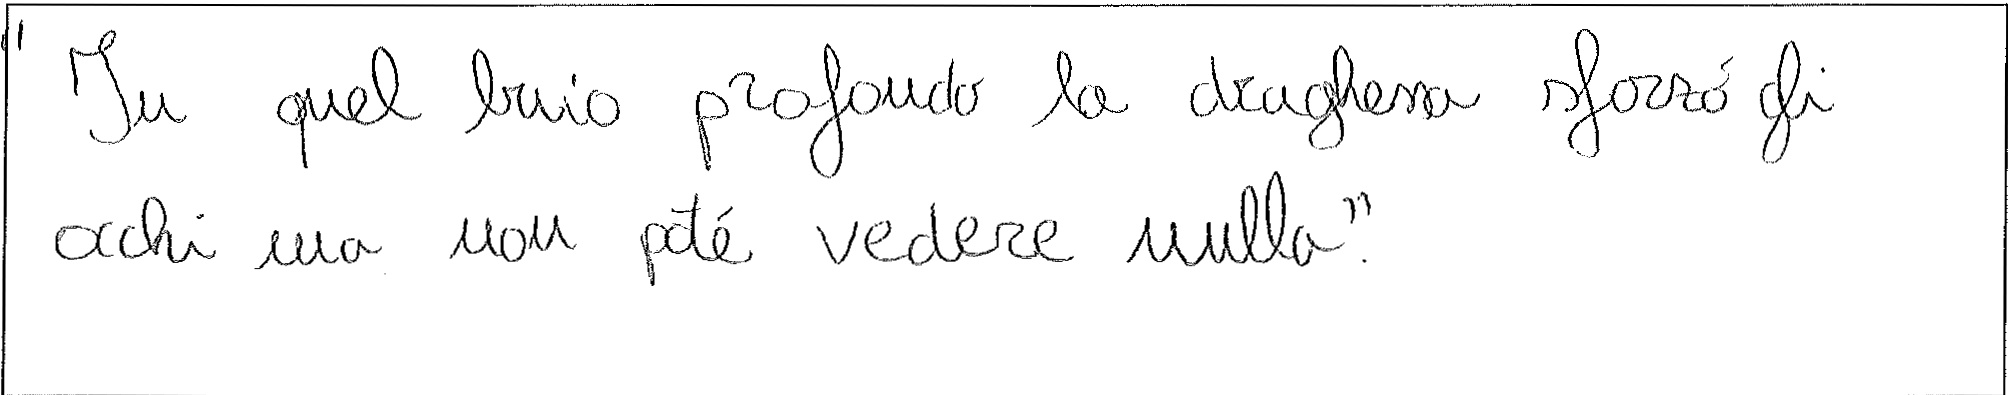 "In quel buio profondo la draghessa sforzó gli
occhi ma non poté vedere nulla".